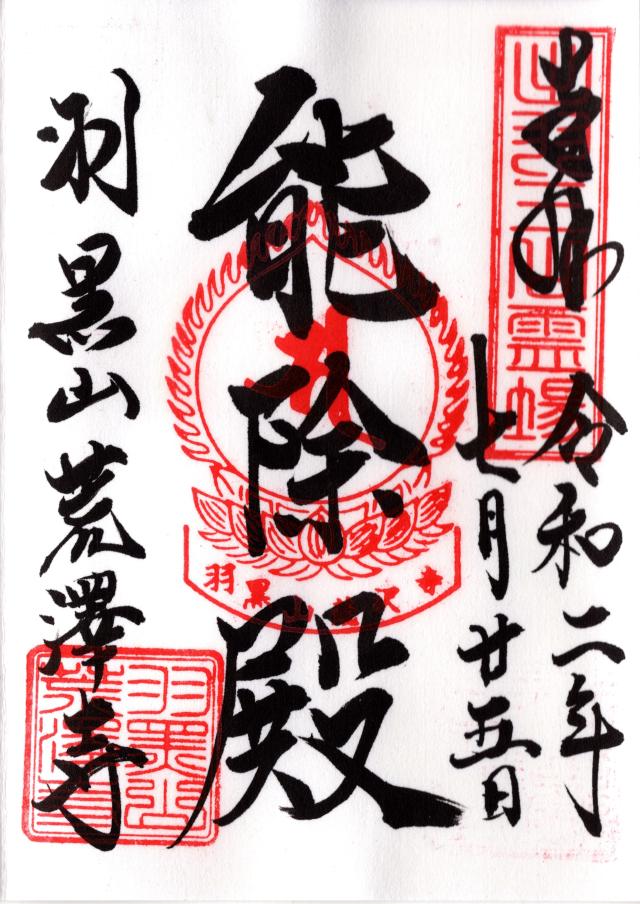 奉拝
令和二年
七月廿五日
能除殿
羽黒山荒澤寺
出羽三山霊場
羽黒山荒沢寺
羽黒山
荒澤寺